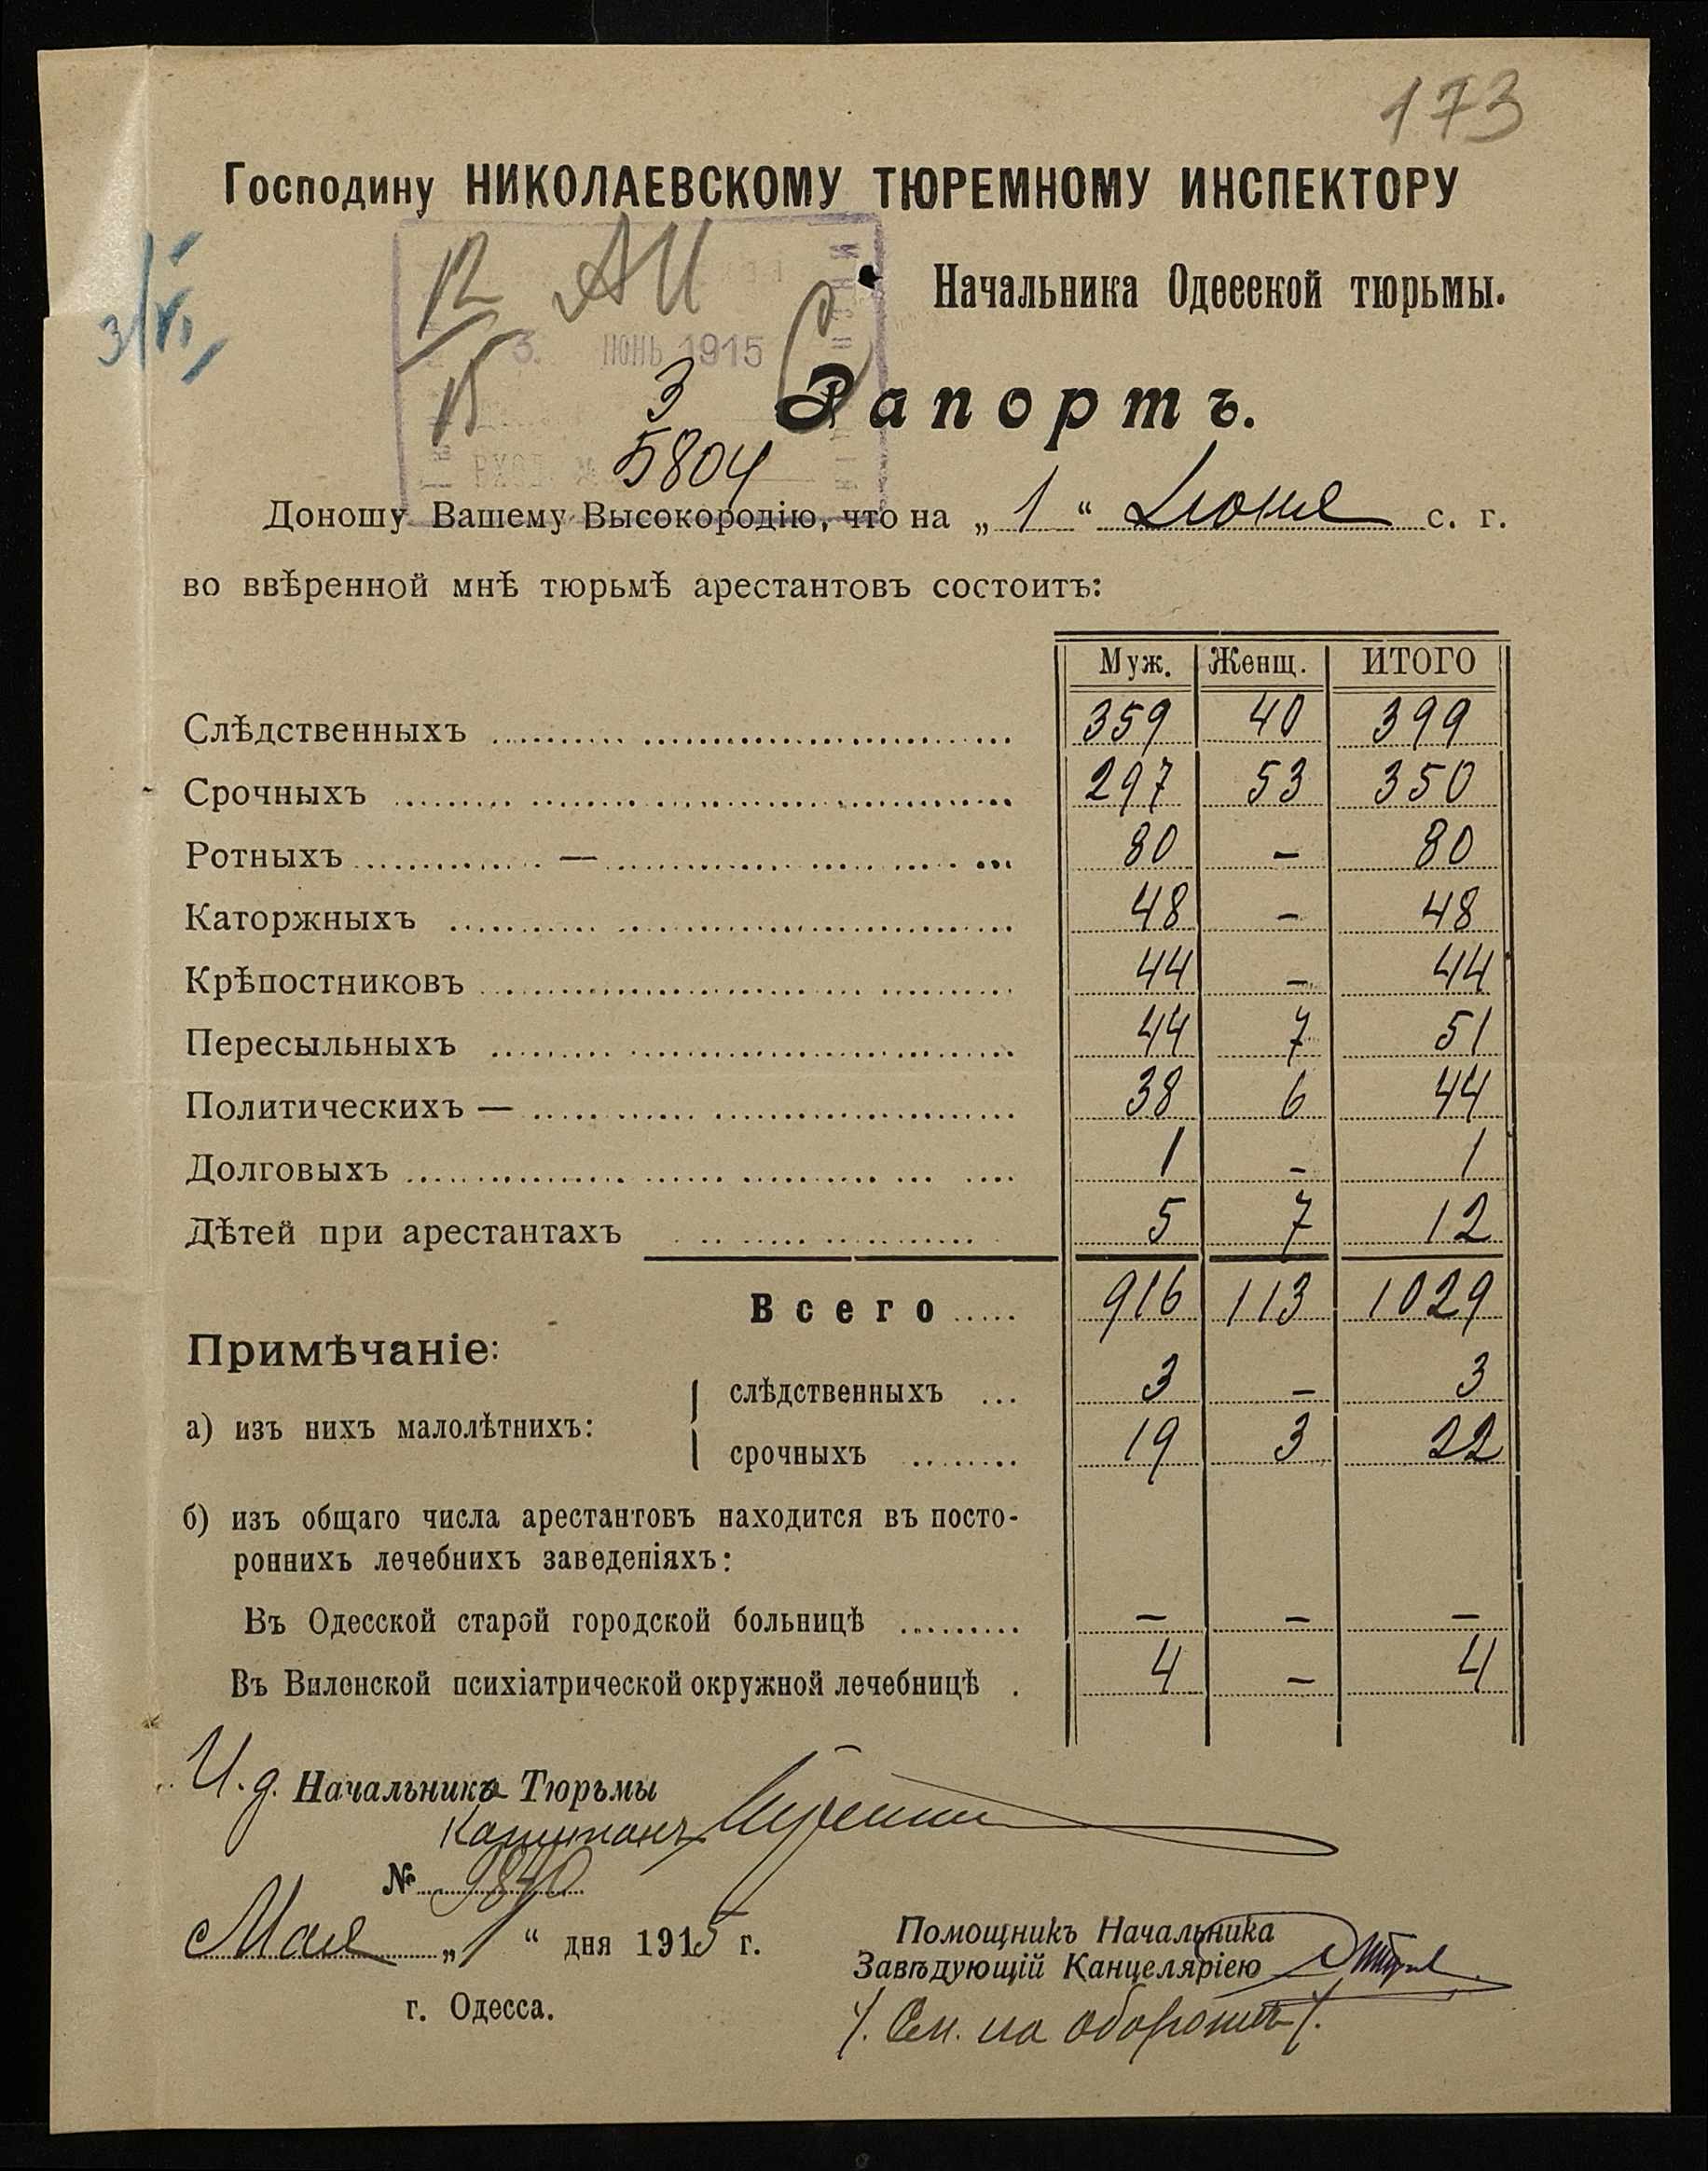 173
Господину НИКОЛАЕВСКОМУ ТЮРЕМНОМУ ИНСПЕКТОРУ
Начальника Одесской тюрьмы.
3/VI
12/15
3. ИЮНЬ 1915
3
Рапортъ.
ВХОД. № 5804
Доношу Вашему Высокородію, что на „1“ Июня с. г.
во ввѣренной мнѣ тюрьмѣ арестантовъ состоитъ:
Муж. Женщ. ИТОГО
Слѣдственныхъ 359 40 399
Срочныхъ 297 53 350
Ротныхъ — 80 - 80
Каторжныхъ 48 - 48
Крѣпостниковъ 44 - 44
Пересыльныхъ 44 7 51
Политическихъ — 38 6 44
Долговыхъ 1 - 1
Дѣтей при арестантахъ 5 7 12
Всего 916 113 1029
Примѣчаніе:
а) изъ нихъ малолѣтнихъ:
слѣдственныхъ 3 - 3
срочныхъ 19 3 22
б) изъ общаго числа арестантовъ находится въ посто-
роннихъ лечебнихъ заведеніяхъ:
Въ Одесской старой городской больницѣ — — —
Въ Виленской психіатрической окружной лечебницѣ 4 — 4
И. д. Начальника Тюрьмы
Капитанъ
№ 9840
Мая „1“ дня 1915 г.
г. Одесса.
Помощникъ Начальника
Завѣдующій Канцеляріею
/. См. на оборотѣ /.